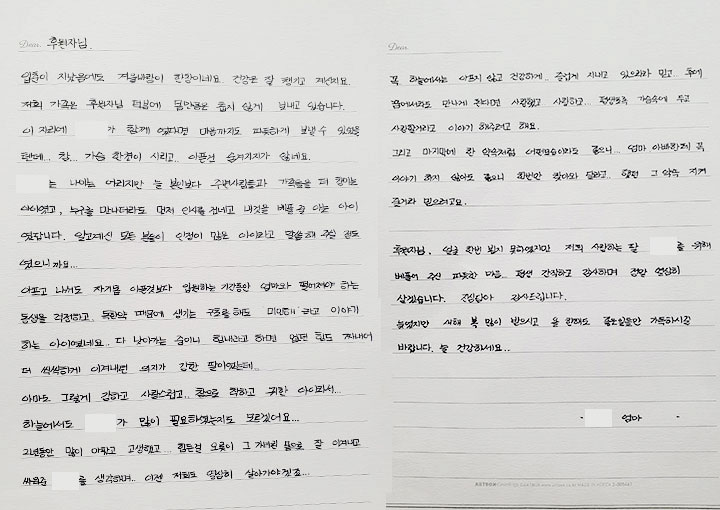 Dear. 후원자님.
입춘이 지났음에도 겨울바람이 한창이네요. 건강은 잘 챙기고 계신지요.
저희 가족은 후원자님 덕분에 몸만큼은 춥지 않게 보내고 있습니다.
이 자리에 가 함께 였다면 마음까지도 따뜻하게 보낼 수 있었을
텐데... 참... 가슴 한켠이 시리고.. 아픔은 숨겨지지가 않네요.
는 나이는 어리지만 늘 본인보다 주변사람들과 가족들을 더 챙기는
아이였고, 누구를 만나더라도 먼저 인사를 건네고 내것을 베풀 줄 아는 아이
였답니다. 알고계신 모든 분들이 인정이 많은 아이라고 말씀해 주실 정도
였으니까요...
아프고 나서도 자기몸 아픈것보다 입원하는 기간동안 엄마와 떨어져야 하는
동생을 걱정하고. 독한약 때문에 생기는 구토를 해도 미안해 라고 이야기
하는 아이였네요.. 다 낫아가는 중이니 힘내라고 하면 없던 힘도 짜내며
더 씩씩하게 이겨내던 의지가 강한 딸이었는데...
아마도 그렇게 강하고 사랑스럽고.. 참으로 착하고 귀한 아이라서...
하늘에서도 가 많이 필요하셨는지도 모르겠어요...
2년동안 많이 아팠고 고생했고... 힘든걸 오롯이 그 가녀린 몸으로 잘 이겨내고
싸워준 를 생각하며.. 이젠 저희도 열심히 살아가야겠죠...
Dear.
꼭 하늘에서는 아프지 않고 건강하게.. 즐겁게 지내고 있으리라 믿고.. 후에
꿈에서라도 만나게 된다면 사랑했고 사랑하고... 평생토록 가슴속에 두고
사랑할거라고 이야기 해주려고 해요.
그리고 마지막에 한 약속처럼 어떤모습이라도 좋으니... 엄마 아빠한테 꼭
이야기 하지 않아도 좋으니 한번만 찾아와 달라고.. 했던 그 약속 지켜
줄거라 믿으려고요.
후원자님. 얼굴 한번 뵙지 못하였지만 저희 사랑하는 딸 를 위해
베풀어 주신 따뜻한 마음.. 평생 간직하고 감사하며 정말 열심히
살겠습니다. 감사드립니다.
늦었지만 새해 복 많이 받으시고 올 한해도 좋은일들만 가득하시길
바랍니다. 늘 건강하세요..
- 엄마 -